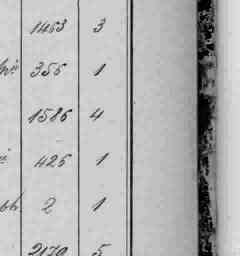 1463 3
356 1
1586 4
425 1
2 1
2170 5